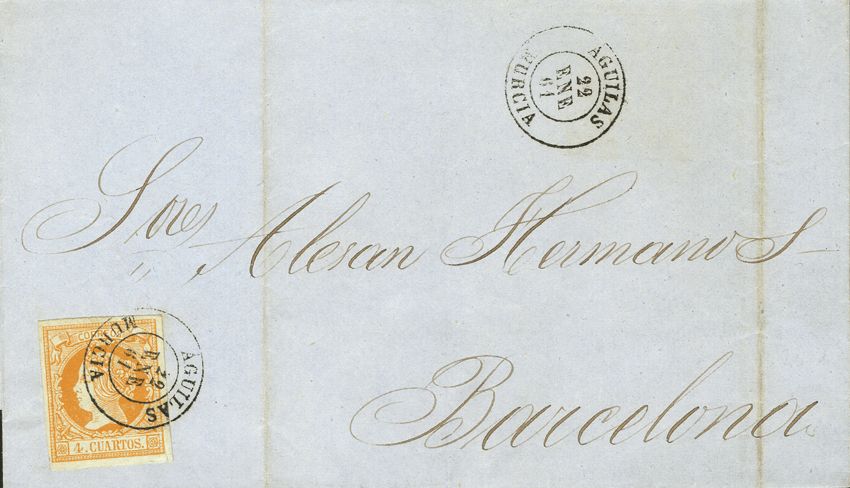 AGUILAS
22
ENE
61
MURCIA
Sores Alesan Hermanos
Barcelona
CORREOS
AGUILAS
22
ENE
61
MURCIA
4. CUARTOS.